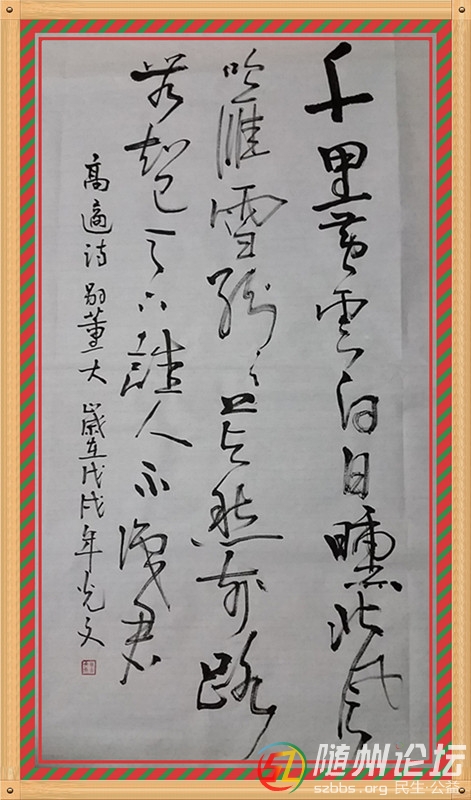 千里黄云白日曛北风
吹雁雪纷々莫愁前路
无知己天下誰人不识君
高適诗别董大 歲在戊戌年光文
随州论坛
szbbs.org 民生·公益